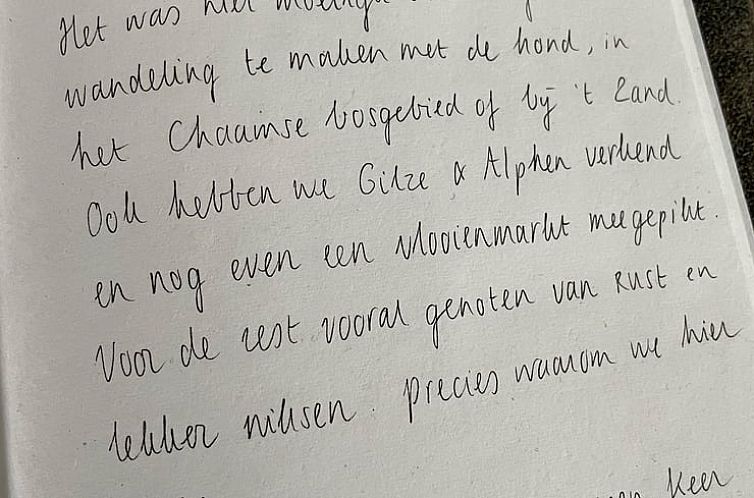 Het was niet moeilijk
wandeling te maken met de hond, in
het Chaamse bosgebied of bij 't Zand.
Ook hebben we Gilze & Alphen verkend
en nog even een vlooienmarkt meegepikt.
Voor de rest vooral genoten van Rust en
lekker niksen. Precies waarom we hier
keer